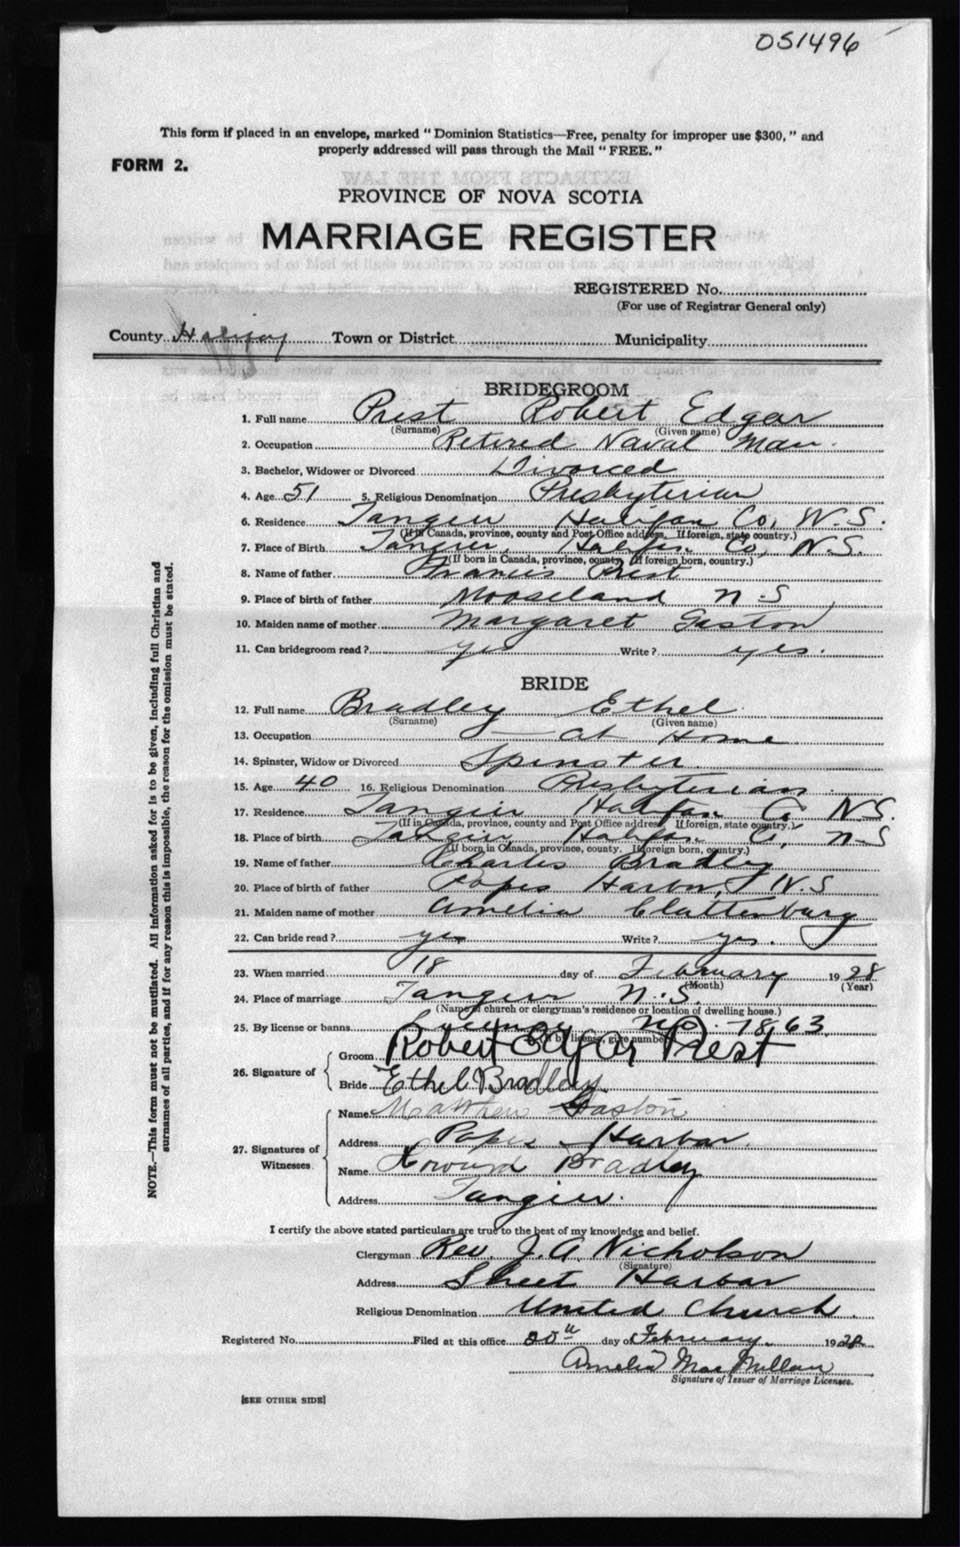 OS1496
This form if placed in an envelope, marked "Dominion Statistics—Free, penalty for improper use $300," and
properly addressed will pass through the Mail "FREE."
FORM 2.
PROVINCE OF NOVA SCOTIA
MARRIAGE REGISTER
REGISTERED No.
(For use of Registrar General only)
County Halifax Town or District Municipality
BRIDEGROOM
1. Full name Prest Robert Edgar
(Surname) (Given name)
2. Occupation Retired Naval Man.
3. Bachelor, Widower or Divorced Divorced
4. Age 51 5. Religious Denomination Presbyterian
6. Residence Tangier Halifax Co, N.S.
(If in Canada, province, county and Post Office address. If foreign, state country.)
7. Place of Birth Tangier, Halifax Co, N.S.
(If born in Canada, province, county. If foreign born, country.)
8. Name of father Francis Prest
9. Place of birth of father Mooseland N.S
10. Maiden name of mother Margaret Gaston
11. Can bridegroom read? yes Write? yes.
BRIDE
12. Full name Bradley Ethel
(Surname) (Given name)
13. Occupation — at Home
14. Spinster, Widow or Divorced Spinster.
15. Age 40 16. Religious Denomination Presbyterian
17. Residence Tangier Halifax Co N.S.
(If in Canada, province, county and Post Office address. If foreign, state country.)
18. Place of birth Tangier, Halifax Co, N-S
(If born in Canada, province, county. If foreign born, country.)
19. Name of father Charles Bradley
20. Place of birth of father Popes Harbor, N.S
21. Maiden name of mother Amelia Clattenburg
22. Can bride read? yes Write? yes.
23. When married 18 day of February 1928
(Month) (Year)
24. Place of marriage Tangier N.S.
(Name of church or clergyman's residence or location of dwelling house.)
25. By license or banns License No. 7863
(If by license, give number)
26. Signature of Groom Robert Edgar Prest
Bride Ethel Bradley
27. Signatures of Witnesses. Name Matthew Gaston
Address Popes Harbor.
Name Howard Bradley
Address Tangier.
I certify the above stated particulars are true to the best of my knowledge and belief.
Clergyman Rev. J. A. Nicholson
(Signature)
Address Sheet Harbor
Religious Denomination United Church.
Registered No. Filed at this office 20th day of February 1928
Amelia MacMillan
Signature of Issuer of Marriage Licenses.
[SEE OTHER SIDE]
NOTE.—This form must not be mutilated. All information asked for is to be given, including full Christian and
surnames of all parties, and if for any reason this is impossible, the reason for the omission must be stated.